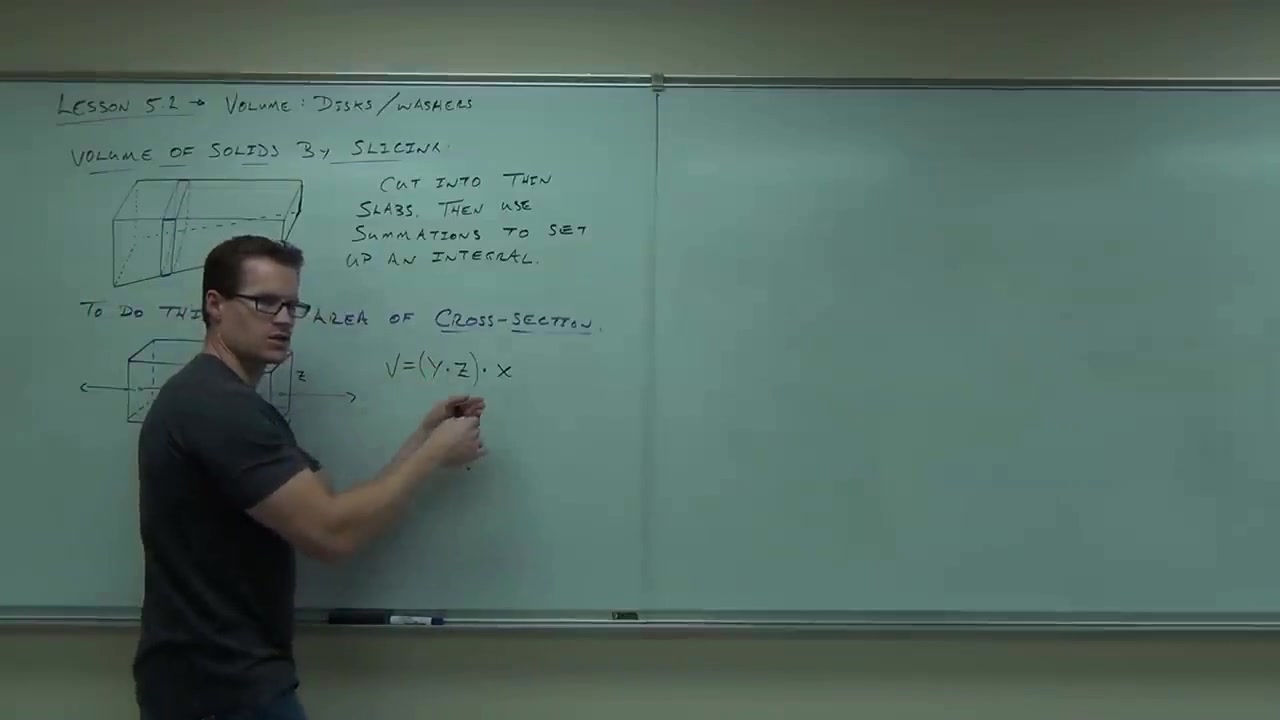 LESSON 5.2 → VOLUME: DISKS/WASHERS
VOLUME OF SOLIDS BY SLICING.
CUT INTO THIN
SLABS. THEN USE
SUMMATIONS TO SET
UP AN INTEGRAL.
TO DO THI AREA OF CROSS-SECTION.
z
V=(Y·Z)·x